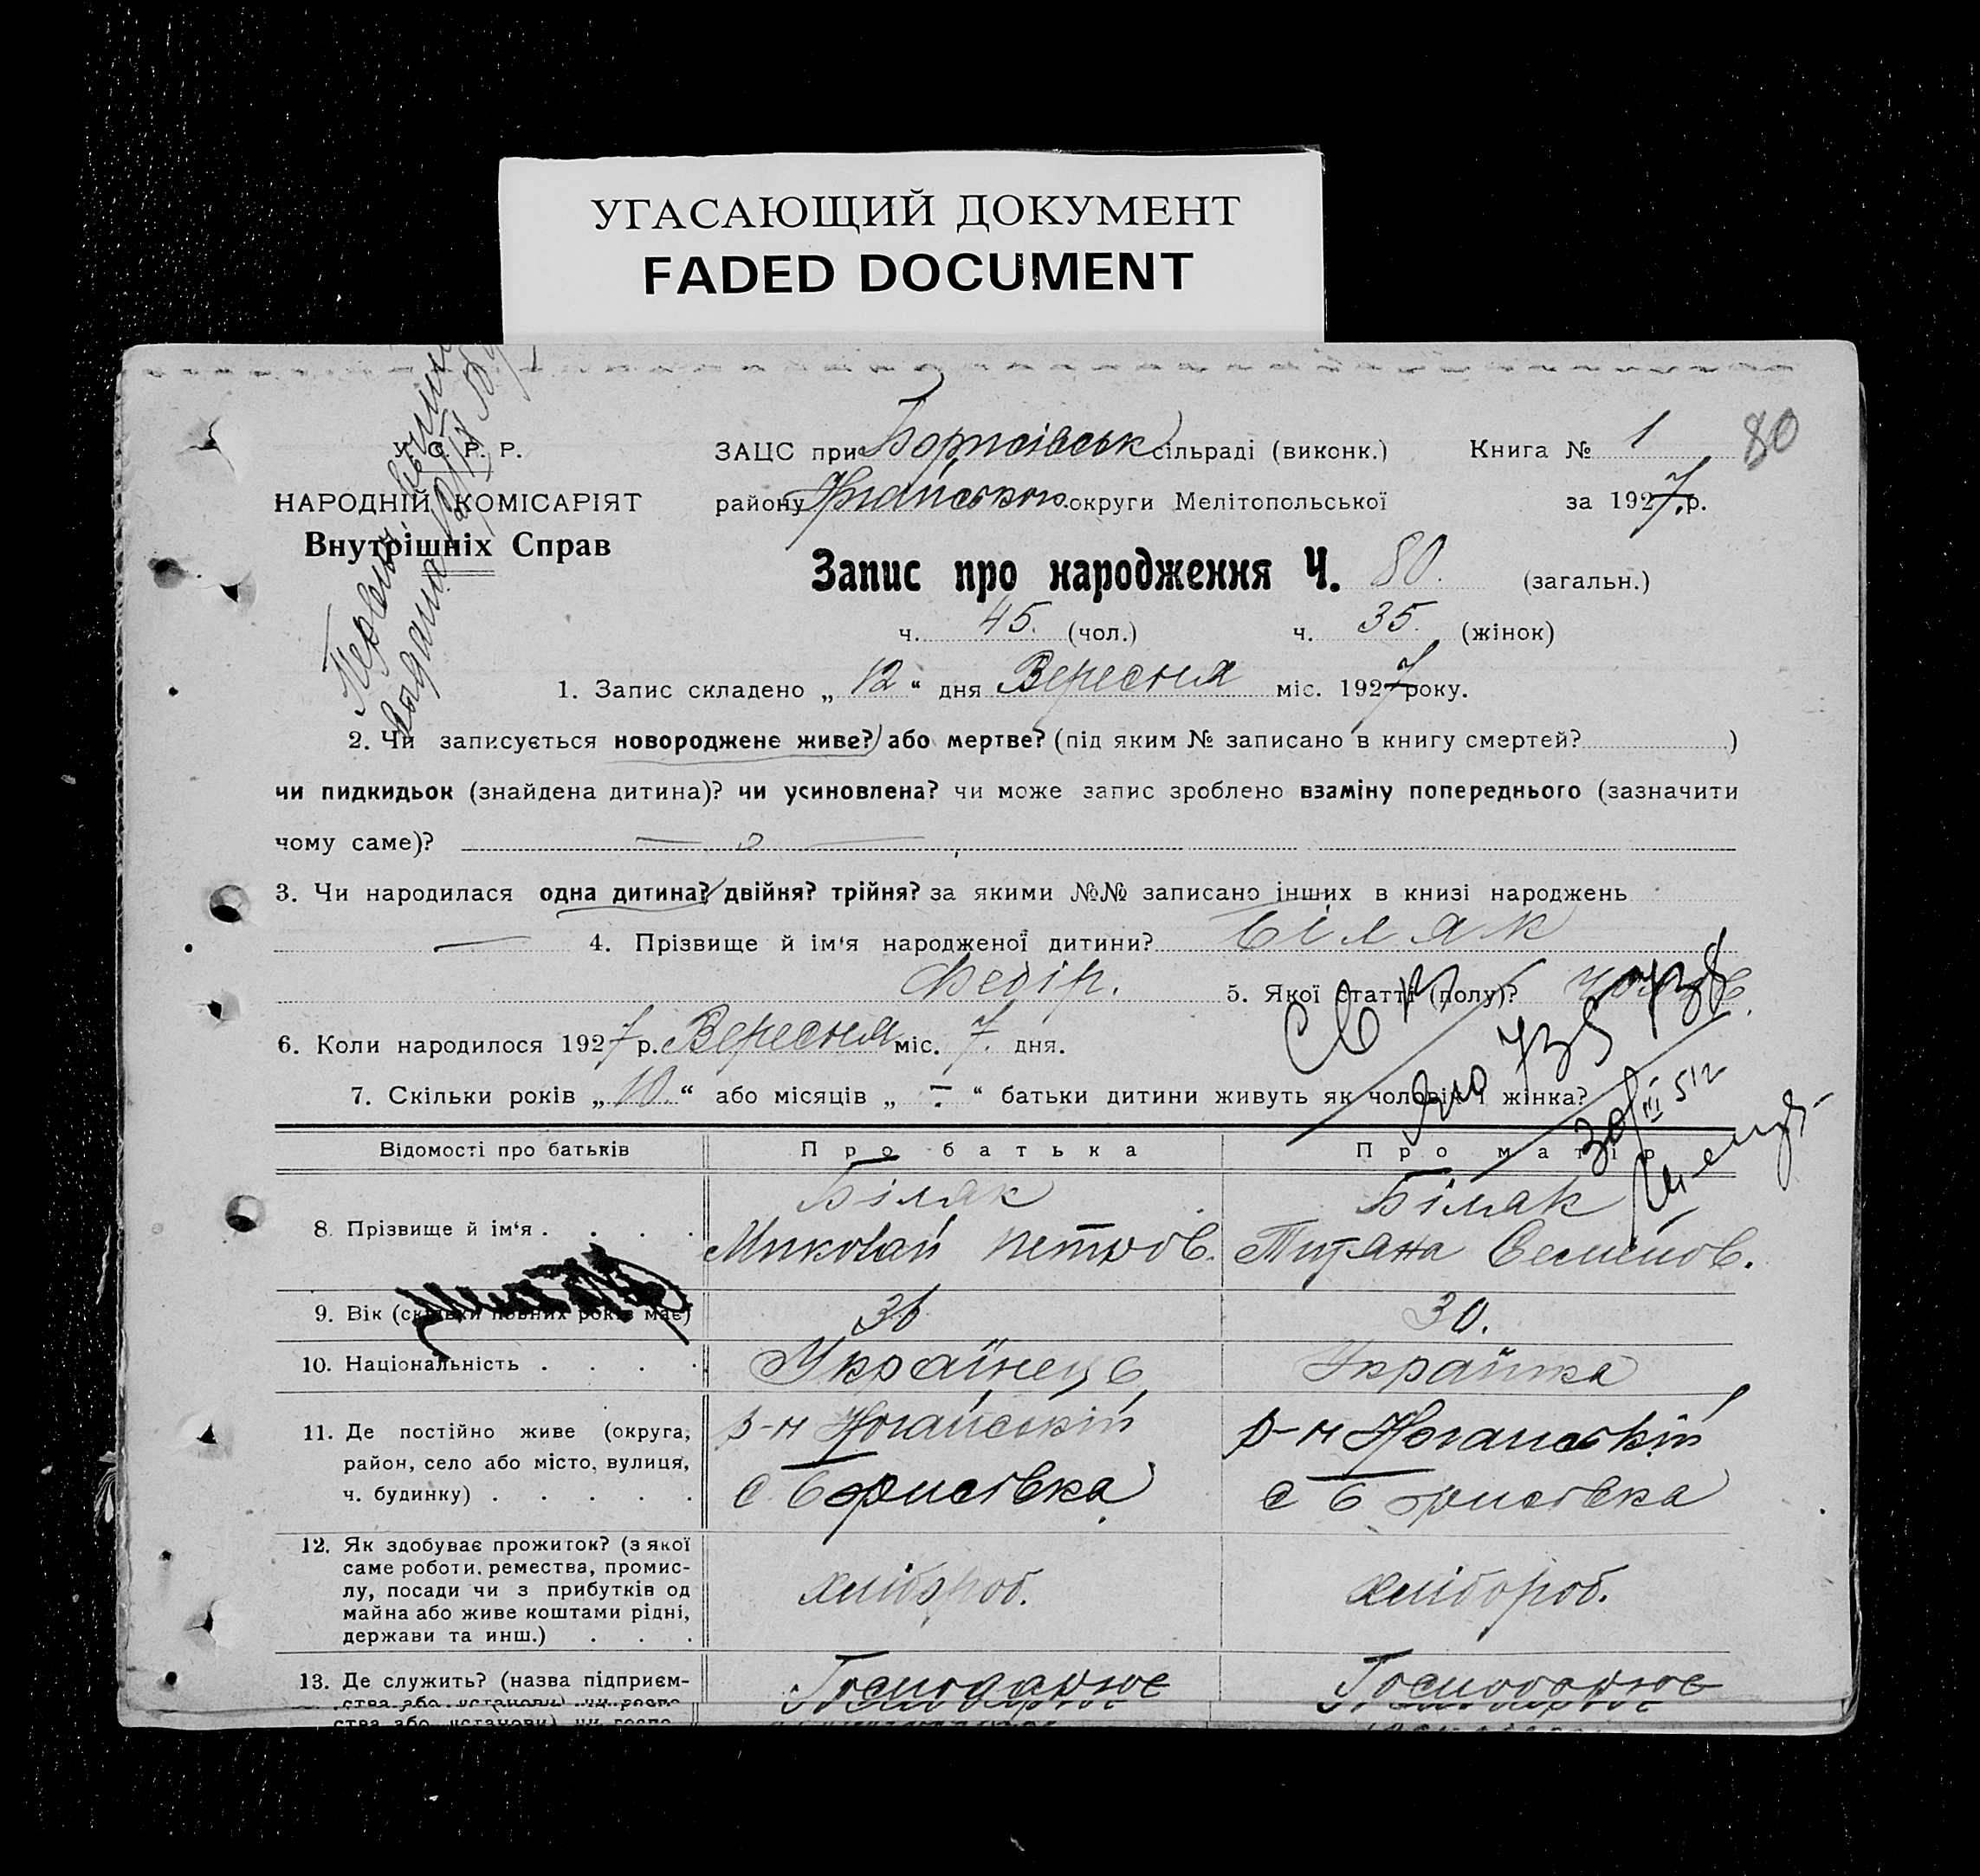 УГАСАЮЩИЙ ДОКУМЕНТ
FADED DOCUMENT
У. С. Р. Р.
НАРОДНІЙ КОМІСАРІЯТ
Внутрішніх Справ
ЗАЦС при Борисівськ сільраді (виконк.) Книга № 1
80
району Ногайського округи Мелітопольської за 1927 р.
Запис про народження Ч. 80. (загальн.)
ч. 45. (чол.) ч. 35. (жінок)
1. Запис складено „ 12 “ дня Вересня міс. 1927 року.
2. Чи записується новороджене живе? або мертве? (під яким № записано в книгу смертей? )
чи пидкидьок (знайдена дитина)? чи усиновлена? чи може запис зроблено взаміну попереднього (зазначити
чому саме)?
3. Чи народилася одна дитина? двійня? трійня? за якими №№ записано інших в книзі народжень
— 4. Прізвище й ім‘я народженої дитини? Біляк
Федір. 5. Якої статті (полу)?
6. Коли народилося 1927 р. Вересня міс. 7. дня.
7. Скільки років „ 10. “ або місяців „ – “ батьки дитини живуть як чоловік і жінка?
Відомості про батьків Про батька Про матір
8. Прізвище й ім‘я . . . . Біляк Біляк
Миколай Петров. Титяна Семенов.
9. Вік (скільки повних років має) 36 30.
10. Національність . . . . Українець Українка
11. Де постійно живе (округа, район, село або місто, вулиця, ч. будинку) . . . . . р-н Ногайській р-н Ногайській
с Борисівка с Борисівка
12. Як здобуває прожиток? (з якої
саме роботи, ремества, промис-
лу, посади чи з прибутків од
майна або живе коштами рідні,
держави та инш.) . . . хлібороб. хлібороб.
13. Де служить? (назва підприєм- Господарює Господарює
ства або установи) чи госпо-